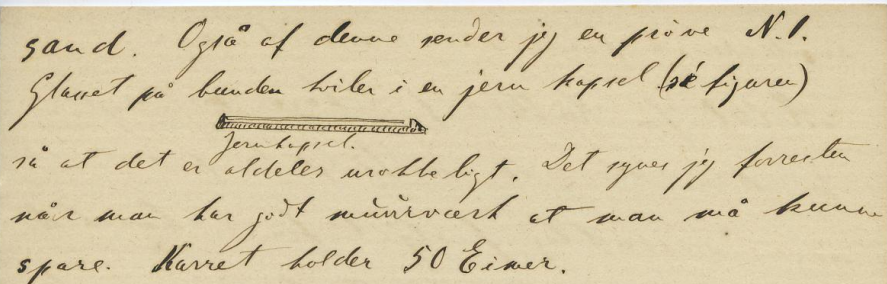 sand. Også af denne sender jeg en pröve N. 1.
Glasset på bunden hviler i en jern kapsel (sé figuren)
Jernkapsel.
så at det er aldeles urokkeligt. Det synes jeg forresten
når man har godt muurværk at man må kunne
spare. Karret holder 50 Eimer.